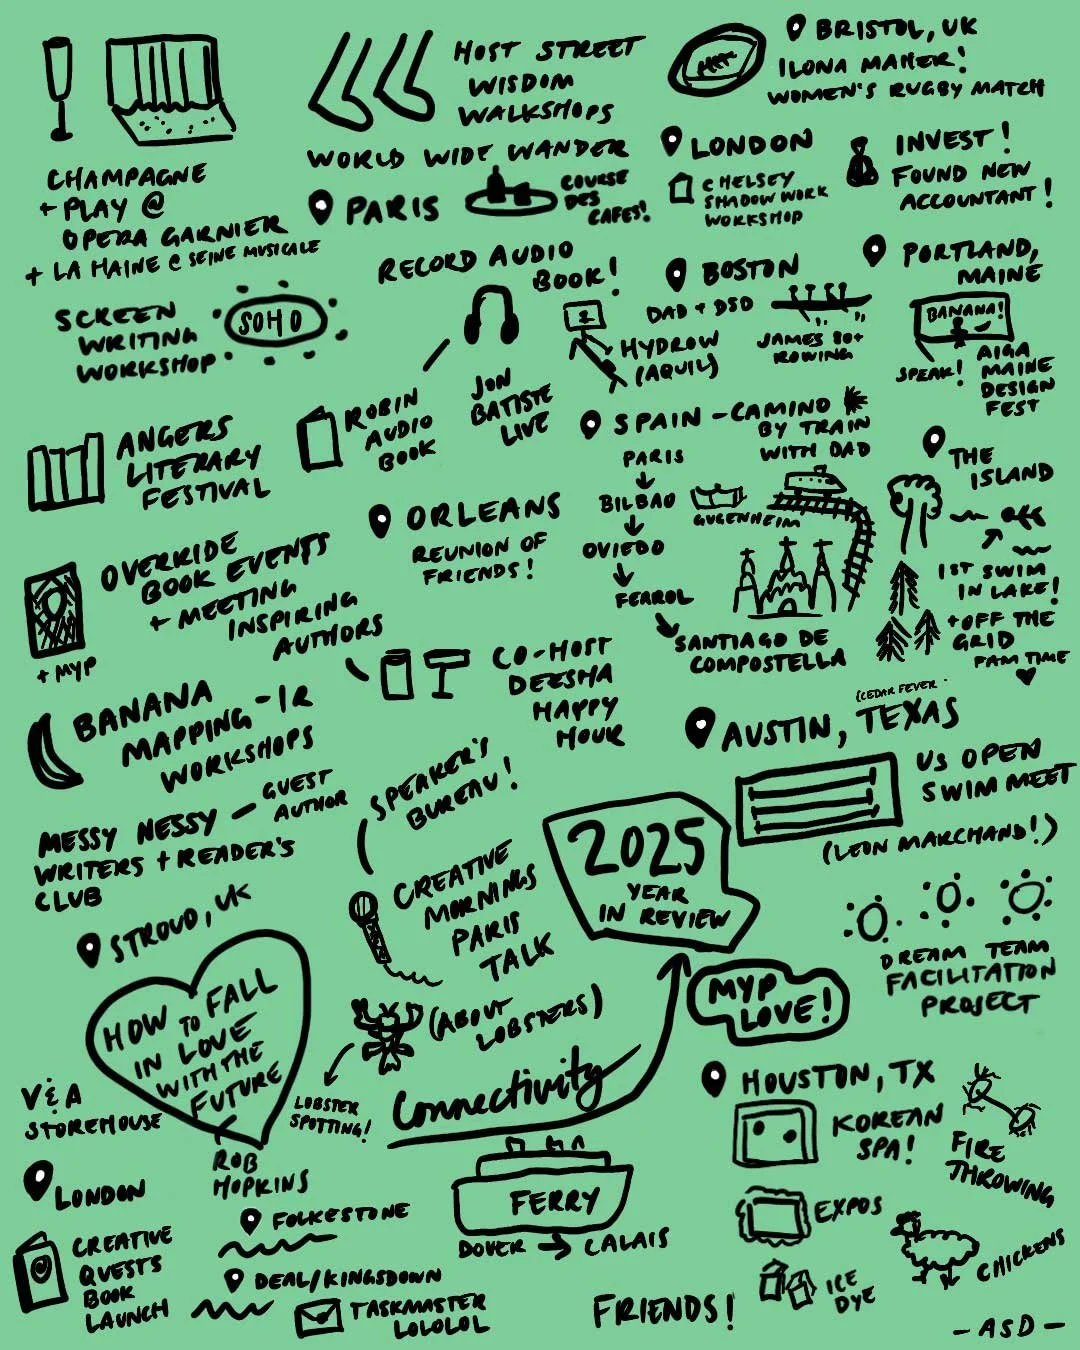 CHAMPAGNE
+ PLAY @
OPERA GARNIER
+ LA HAINE @ SEINE MUSICALE
HOST STREET
WISDOM
WALKSHOPS
WORLD WIDE WANDER
PARIS
COURSE
DES
CAFES!
BRISTOL, UK
ILONA MAHER!
WOMEN'S RUGBY MATCH
LONDON
CHELSEY
SHADOW WORK
WORKSHOP
INVEST!
FOUND NEW
ACCOUNTANT!
SCREEN
WRITING
WORKSHOP
SOHO
RECORD AUDIO
BOOK!
ROBIN
AUDIO
BOOK
JON
BATISTE
LIVE
BOSTON
DAD + DSD
HYDROW
(AQUIL)
JAMES 80+
ROWING
PORTLAND,
MAINE
BANANA!
SPEAK!
AIGA
MAINE
DESIGN
FEST
ANGERS
LITERARY
FESTIVAL
ORLEANS
REUNION OF
FRIENDS!
SPAIN - CAMINO
BY TRAIN
WITH DAD
PARIS
BILBAO
GUGENHEIM
OVIEDO
FERROL
SANTIAGO DE
COMPOSTELLA
THE
ISLAND
1ST SWIM
IN LAKE!
+ OFF THE
GRID
FAM TIME
OVERRIDE
BOOK EVENTS
+ MEETING
INSPIRING
AUTHORS
+ MYP
CO-HOST
DEESHA
HAPPY
HOUR
BANANA
MAPPING - IR
WORKSHOPS
MESSY NESSY - GUEST
AUTHOR
WRITERS + READER'S
CLUB
SPEAKER'S
BUREAU!
CREATIVE
MORNINGS
PARIS
TALK
(ABOUT
LOBSTERS)
LOBSTER
SPOTTING!
2025
YEAR
IN REVIEW
(CEDAR FEVER
AUSTIN, TEXAS
US OPEN
SWIM MEET
(LEON MARCHAND!)
DREAM TEAM
FACILITATION
PROJECT
MYP
LOVE!
STROUD, UK
HOW TO FALL
IN LOVE
WITH THE
FUTURE
ROB
HOPKINS
V&A
STOREHOUSE
LONDON
CREATIVE
QUESTS
BOOK
LAUNCH
Connectivity
FERRY
DOVER → CALAIS
FOLKESTONE
DEAL/KINGSDOWN
TASKMASTER
LOLOLOL
HOUSTON, TX
KOREAN
SPA!
FIRE
THROWING
EXPOS
CHICKENS
ICE
DYE
FRIENDS!
- ASD -